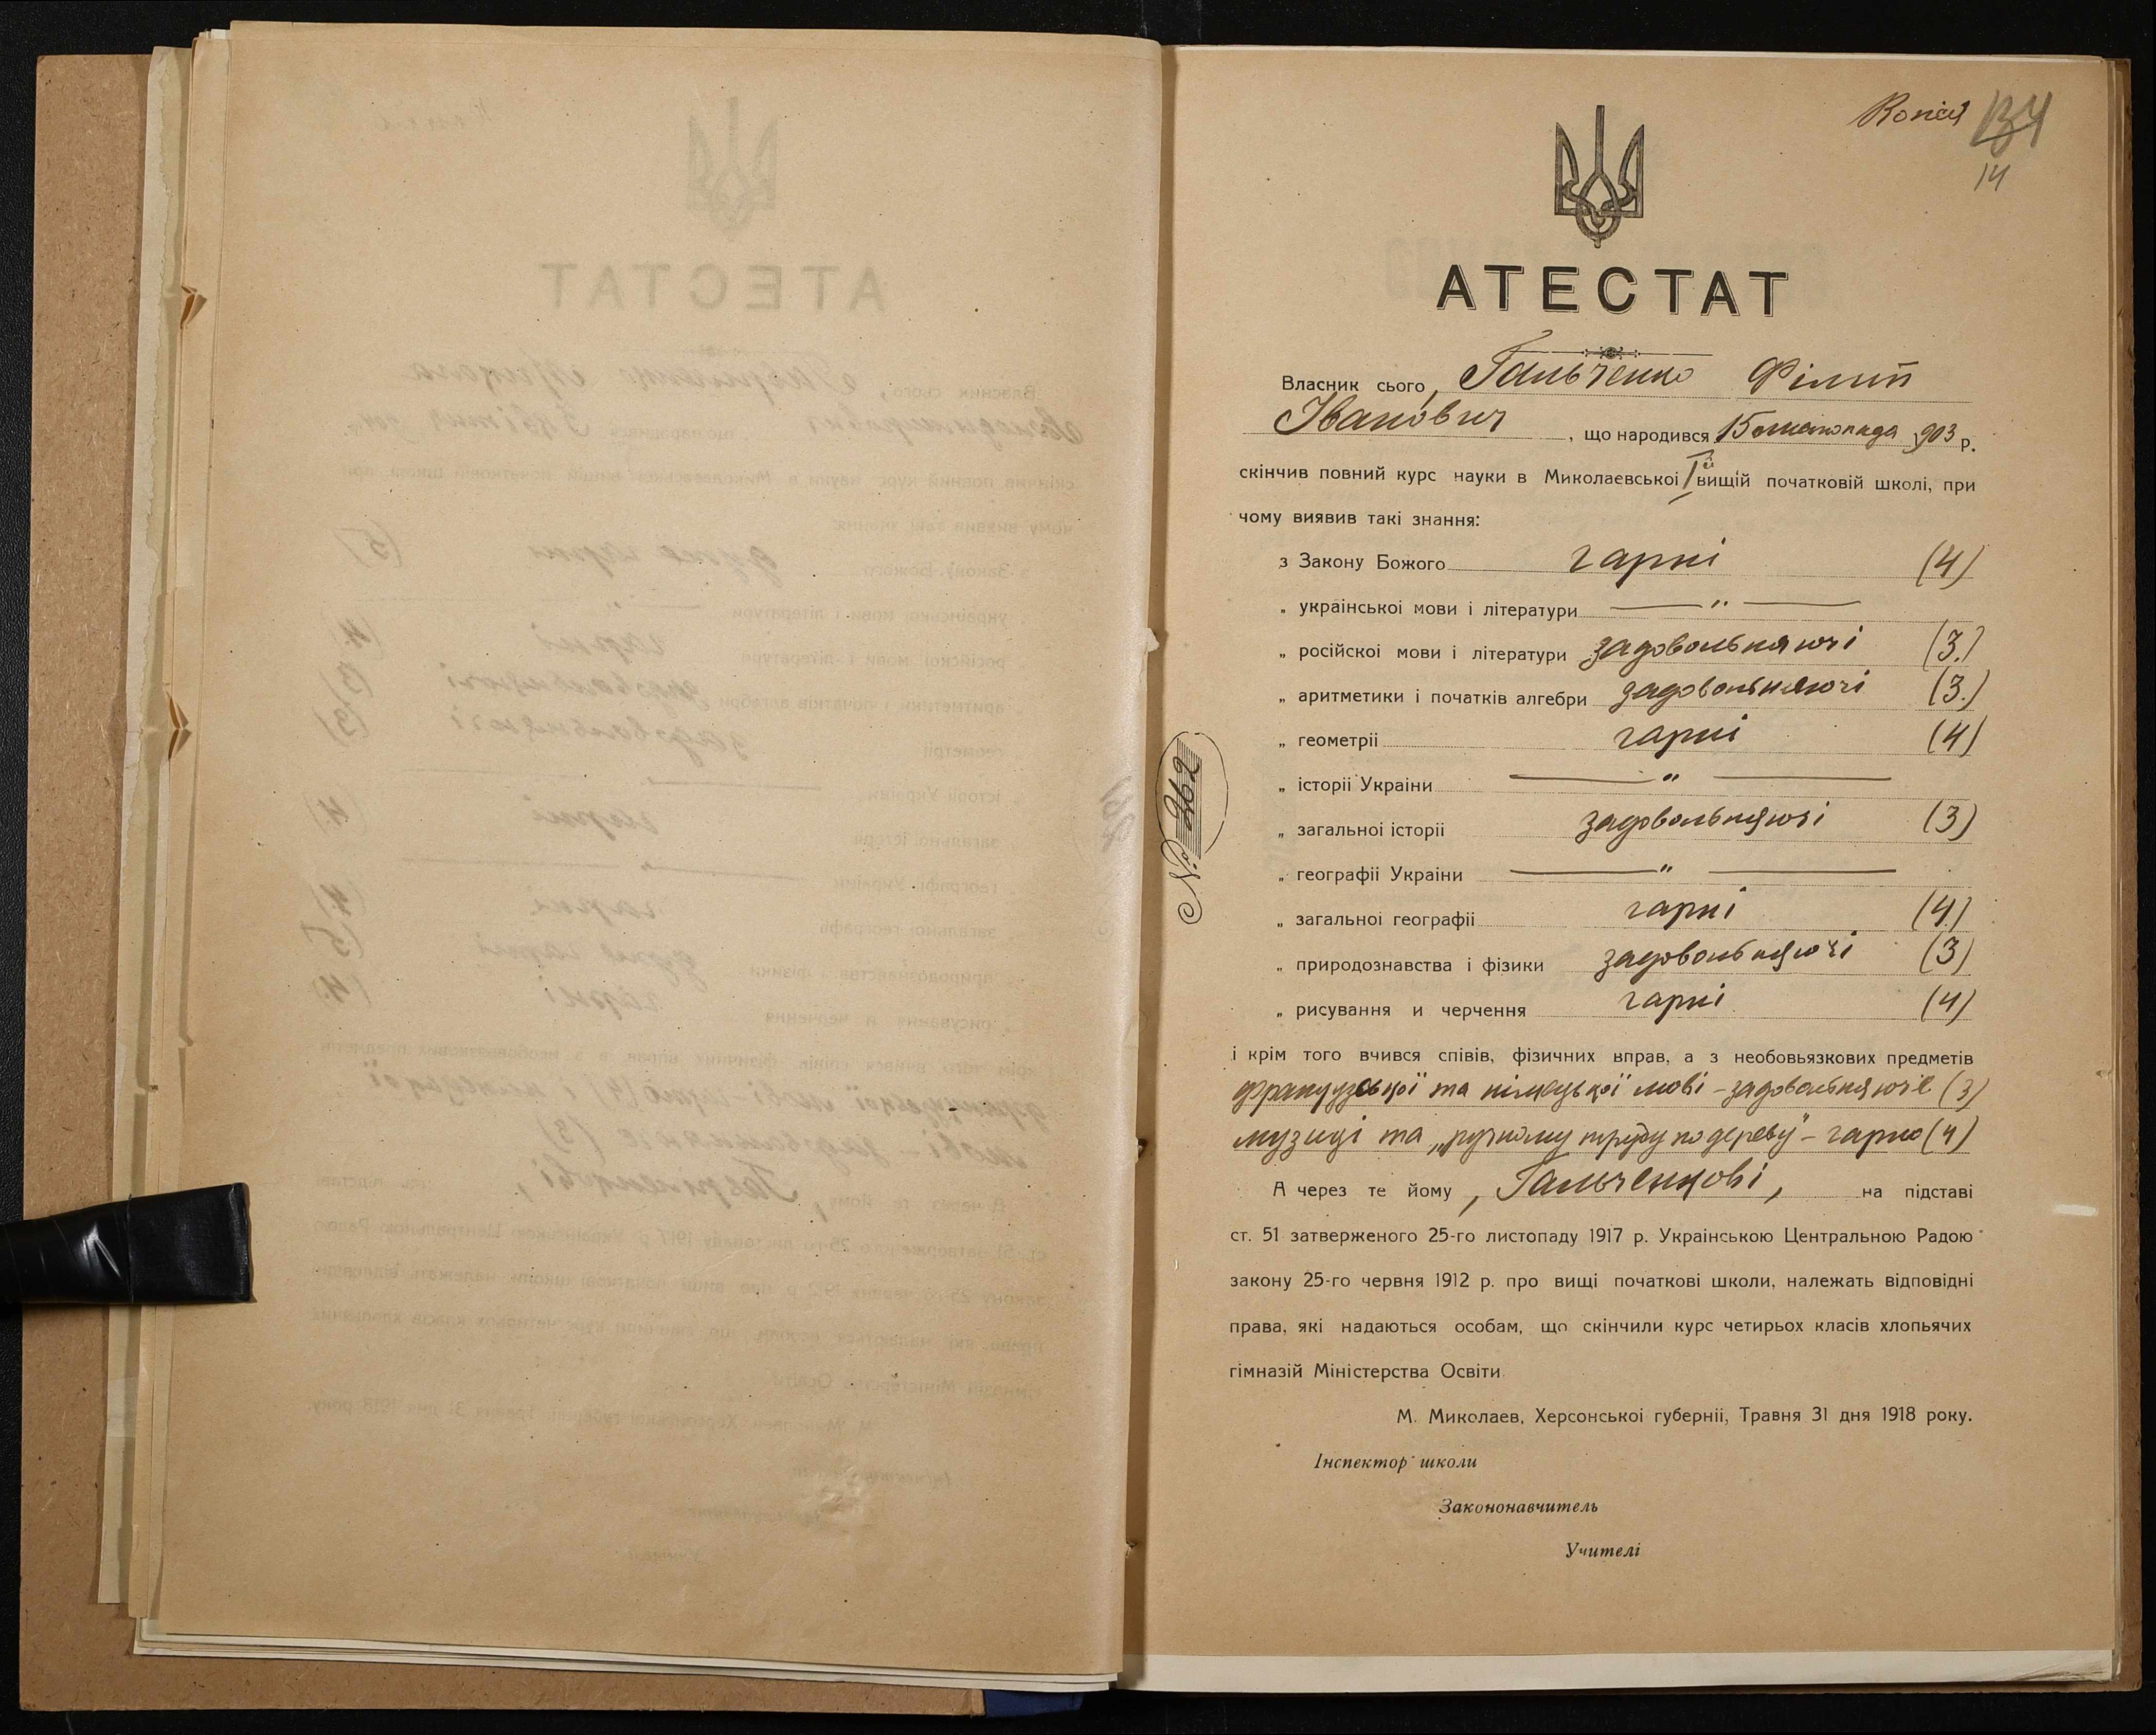 Копія 134
14
АТЕСТАТ
Власник сього, Гальченко Філіп
Іванович, що народився 15 листопада 1903 р.
скінчив повний курс науки в Миколаевськоі Iй вищій початковій школі, при
чому виявив такі знання:
з Закону Божого гарні (4)
„ украінськоі мови і літератури — „ —
„ російскоі мови і літератури задовольняючі (3.)
„ аритметики і початків алгебри задовольняючі (3.)
„ геометріі гарні (4)
„ історіі Украіни — „ —
„ загальноі історіі задовольняючі (3)
„ географіі Украіни — „ —
„ загальноі географіі гарні (4)
„ природознавства і фізики задовольняючі (3)
„ рисування и черчення гарні (4)
і крім того вчився співів, фізичних вправ, а з необовьязкових предметів
французької та німецької мові – задовольняюче (3)
музиці та „ручному труду по дереву" – гарно (4)
А через те йому, Гальченкові, на підставі
ст. 51 затверженого 25-го листопаду 1917 р. Украінською Центральною Радою
закону 25-го червня 1912 р. про вищі початкові школи, належать відповідні
права, які надаються особам, що скінчили курс четирьох класів хлопьячих
гімназій Міністерства Освіти
М. Миколаев, Херсонськоі губерніі, Травня 31 дня 1918 року.
Інспектор школи
Законовчитель
Учителі
№ 362